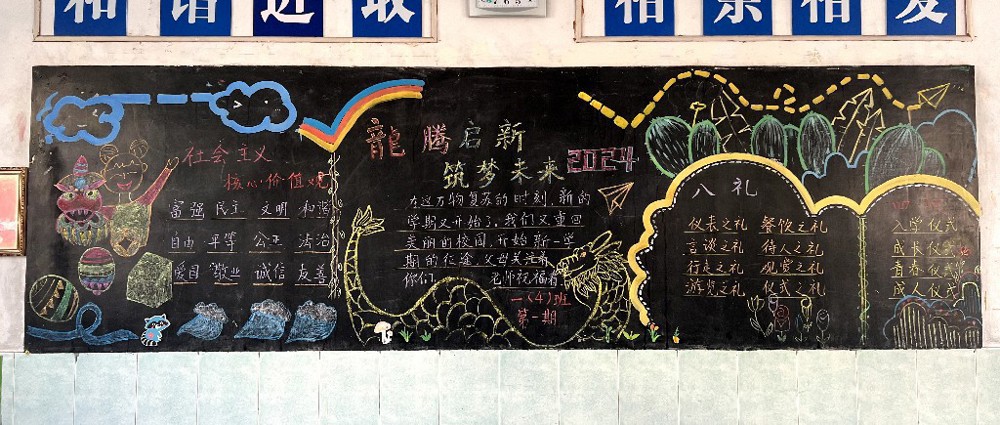 和谐进取
相亲相爱
社会主义
核心价值观
富强 民主 文明 和谐
自由 平等 公正 法治
爱国 敬业 诚信 友善
龍腾启新
筑梦未来 2024
在这万物复苏的时刻,新的
学期又开始了,我们又重回
美丽的校园,开始新一学
期的征途,父母关注着
你们 老师祝福着
一(4)班
第一期
八礼
仪表之礼 餐饮之礼
言谈之礼 待人之礼
行走之礼 观赏之礼
游览之礼 仪式之礼
四
入学仪式
成长仪式
青春仪式
成人仪式